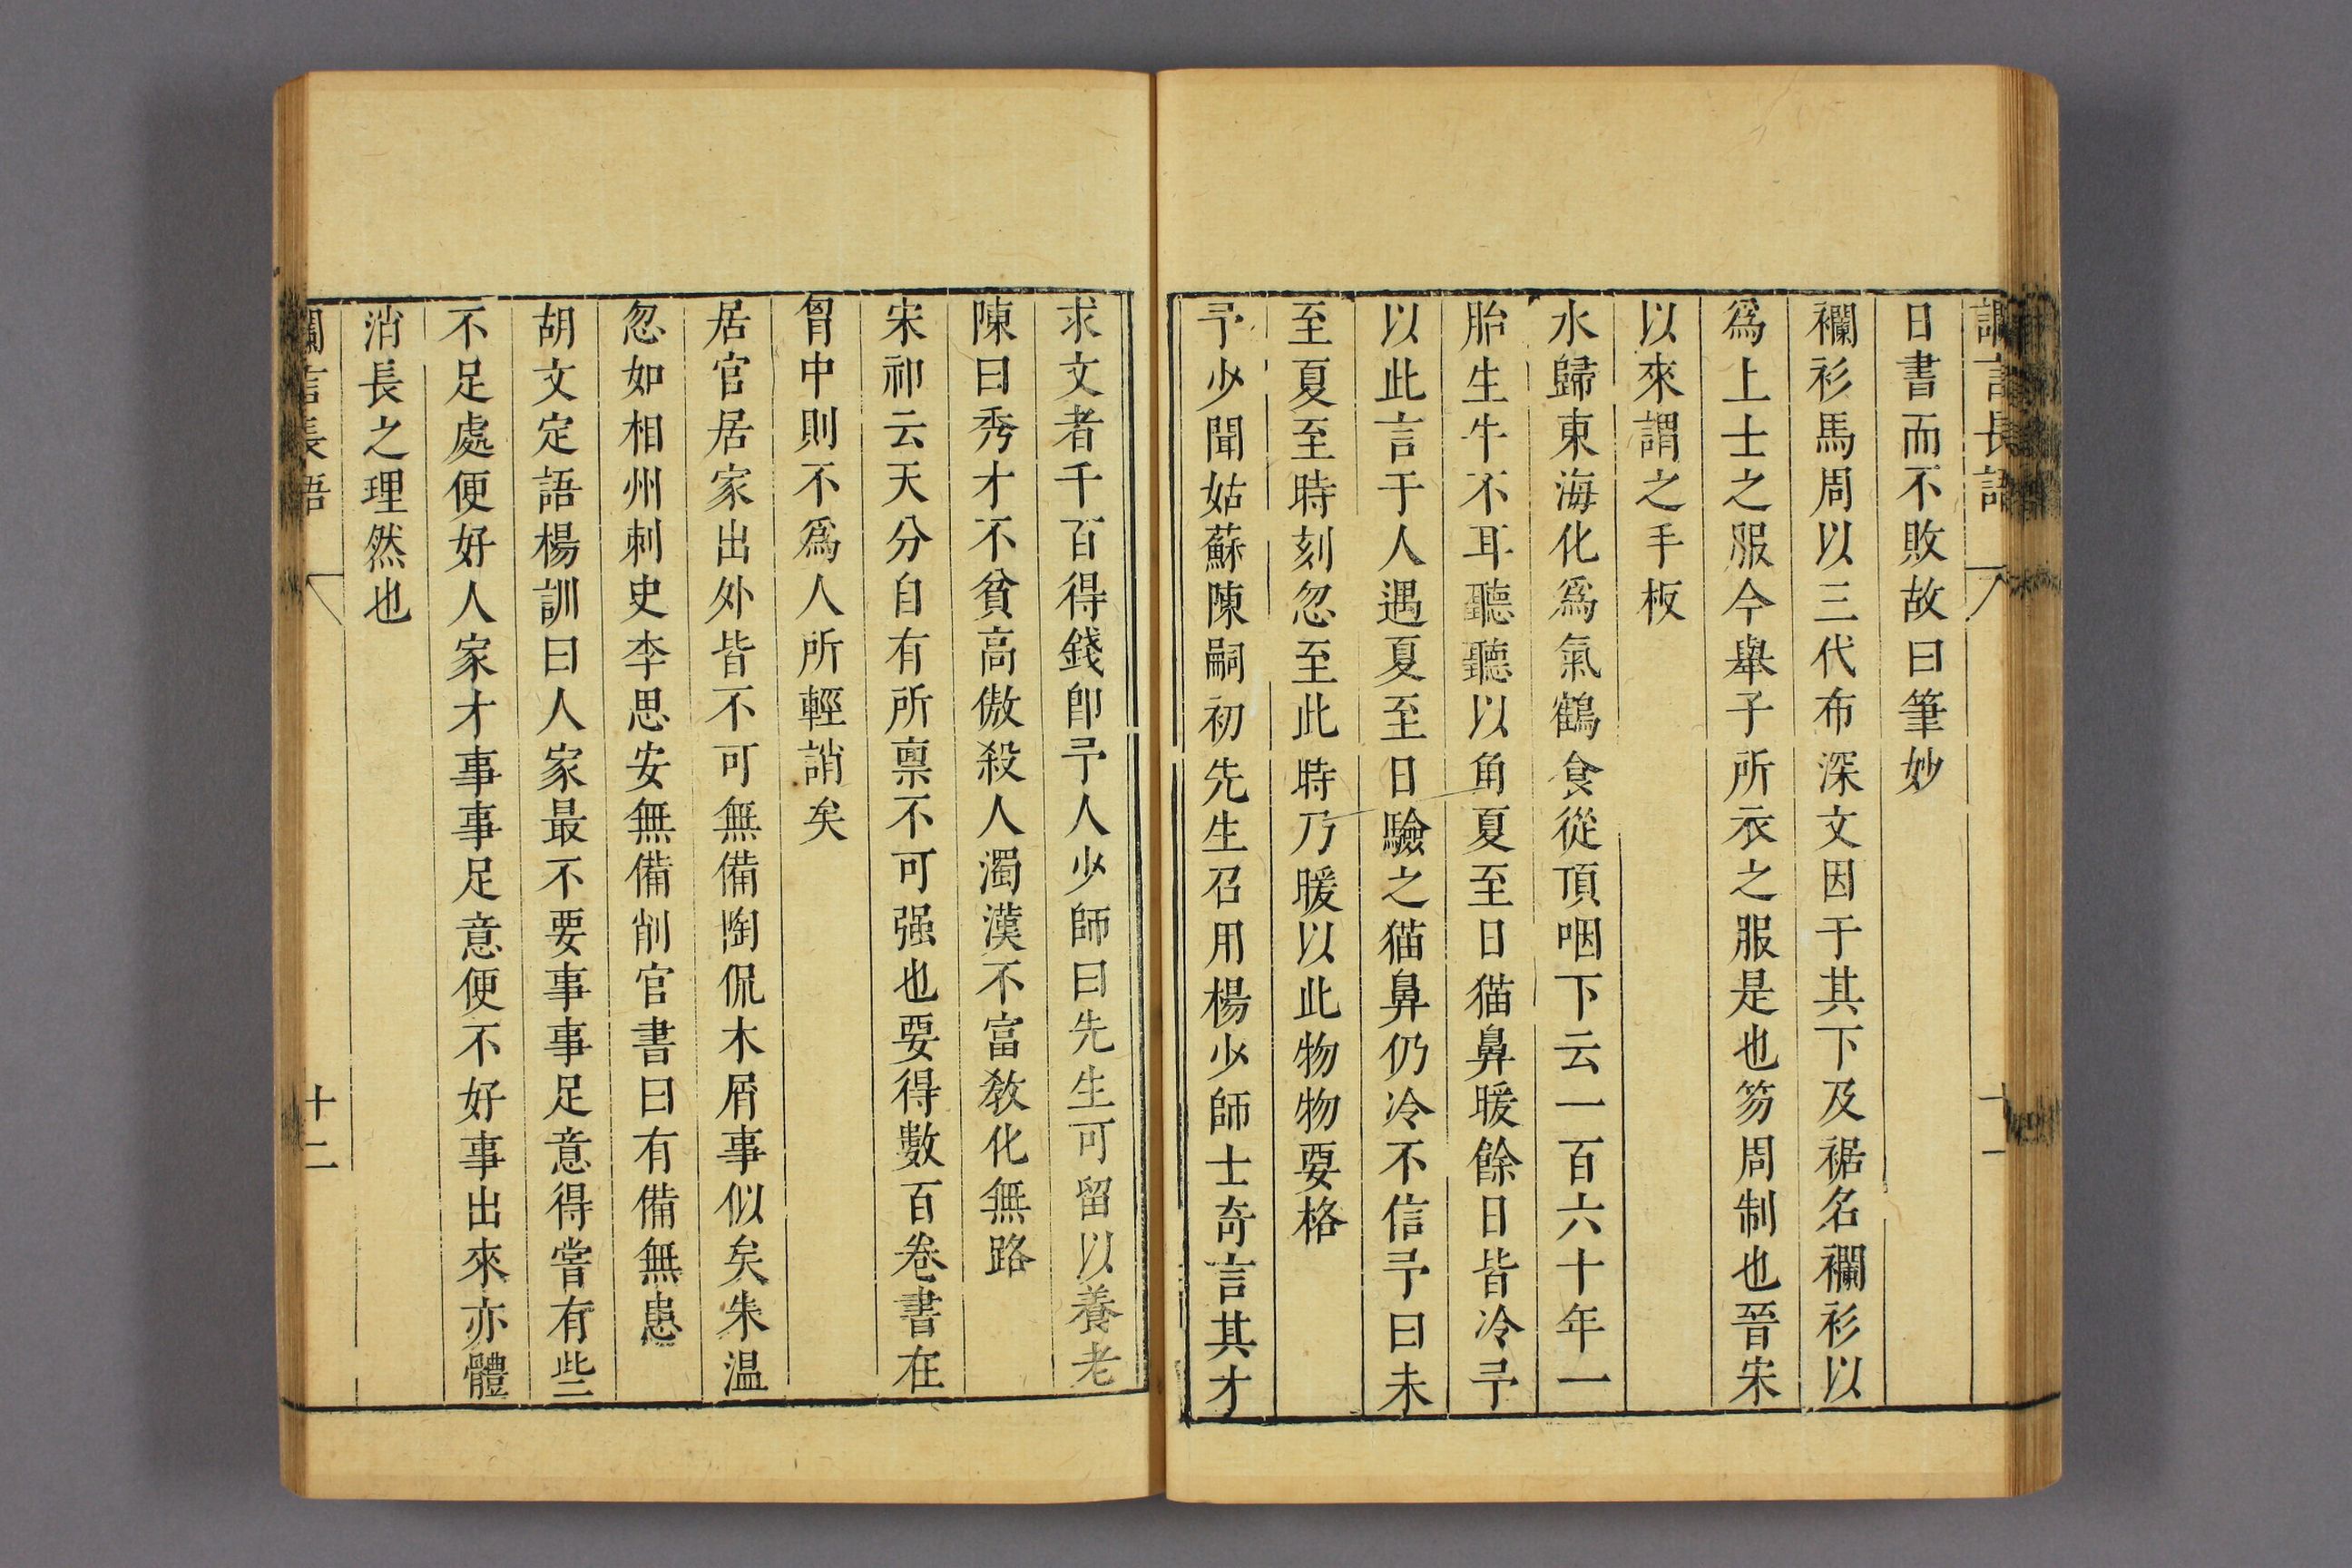 讕言長語
十一
日書而不敗故曰筆妙
襴衫馬周以三代布深文因于其下及裾名襴衫以
爲上士之服今舉子所衣之服是也笏周制也晉宋
以來謂之手板
水歸東海化爲氣鶴食從頂咽下云一百六十年一
胎生牛不耳聽聽以角夏至日猫鼻暖餘日皆冷予
以此言于人遇夏至日驗之猫鼻仍冷不信予曰未
至夏至時刻忽至此時乃暖以此物物要格
予少聞姑蘇陳嗣初先生召用楊少師士奇言其才
求文者千百得錢卽予人少師曰先生可留以養老
陳曰秀才不貧高傲殺人濁漢不富敎化無路
宋祁云天分自有所禀不可强也要得數百卷書在
胷中則不爲人所輕誚矣
居官居家出外皆不可無備陶侃木屑事似矣朱温
忽如相州刺史李思安無備削官書曰有備無患
胡文定語楊訓曰人家最不要事事足意得嘗有些
不足處便好人家才事事足意便不好事出來亦體
消長之理然也
讕言長語
十二